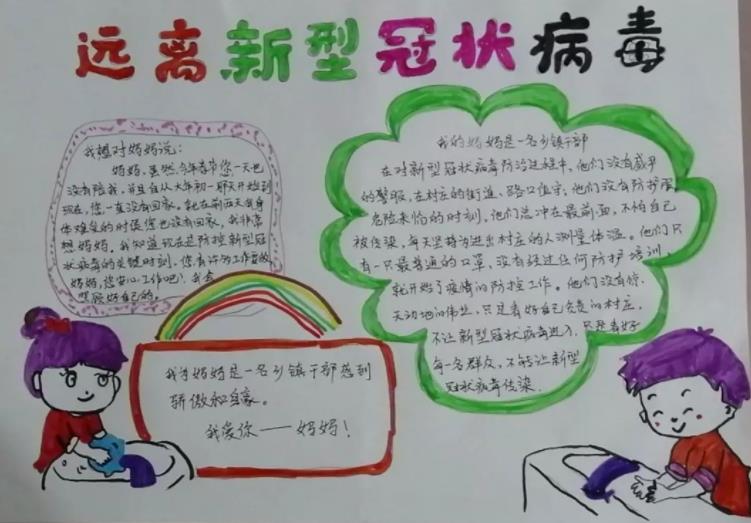 远离新型冠状病毒
我想对妈妈说：
妈妈，虽然今年春节您一天也
没有陪我，并且自从大年初一那天开始到
现在，您一直没有回家，就在前两天我身
体难受的时候您也没有回家，我非常
想妈妈，我知道现在是防控新型冠
状病毒的关键时刻，您有许多工作要做，
妈妈，您安心工作吧！我会
照顾好自己的。
我的妈妈是一名乡镇干部
在对新型冠状病毒防治过程中，他们没有威严
的警服，在村庄的街道、路口值守；他们没有防护服，
危险来临的时刻，他们总冲在最前面，不怕自己
被传染，每天坚持为进出村庄的人测量体温。他们只
有一只最普通的口罩，没有经过任何防护培训，
就开始了疫情的防控工作。他们没有惊
天动地的伟业，只是看好自己负责的村庄，
不让新型冠状病毒进入，只是看好
每一名群众，不能让新型
冠状病毒传染。
我为妈妈是一名乡镇干部感到
骄傲和自豪。
我爱你——妈妈！